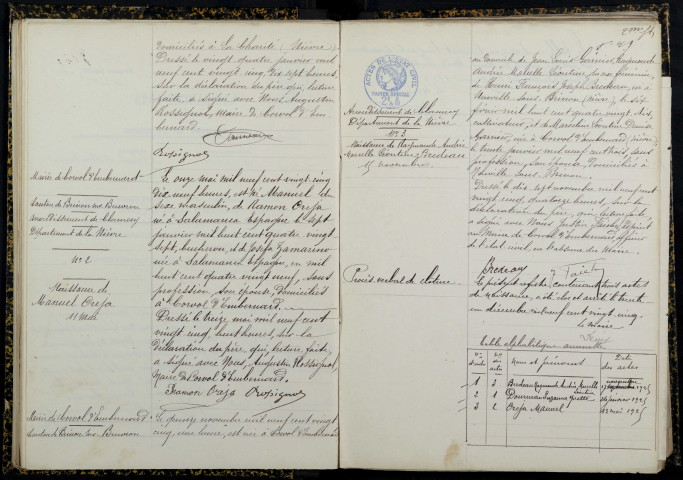 domiciliés à La Charité (Nièvre).
Dressé le vingt quatre janvier mil
neuf cent vingt cinq, dix sept heures,
sur la déclaration du père qui, lecture
faite, a signé avec Nous, Augustin
Rossignol, Maire de Corvol d'Em-
bernard.
Rossignol
Mairie de Corvol d'Embernard
Canton de Brinon sur Beuvron
Arrondissement de Clamecy
Département de la Nièvre
N° 2
Naissance de
Manuel Oreja
11 Mai
Le onze mai mil neuf cent vingt cinq
dix neuf heures, est né Manuel du
sexe masculin, de Ramon Oreja
né à Salamanca Espagne le sept
janvier mil huit cent quatre vingt
sept, bucheron, et de Josefa Zamarino
née à Salamanca Espagne, en mil
huit cent quatre vingt neuf, sans
profession, son épouse, domiciliés
à Corvol d'Embernard.
Dressé le treize mai mil neuf cent
vingt cinq, huit heures, sur la
déclaration du père, qui, lecture faite,
a signé avec Nous, Augustin Rossignol,
Maire de Corvol d'Embernard.
Ramon Oreja Rossignol
Mairie de Corvol d'Embernard
Canton de Brinon sur Beuvron
Le quinze novembre mil neuf cent vingt
cinq, une heure, est née à Corvol d'Embernard
ACTES DE L'ETAT CIVIL
PAPIER SPECIAL
Arrondissement de Clamecy
Département de la Nièvre
N° 3
Naissance de Raymonde Andrée
Marcelle Léontine Bredeau
15 novembre
au domicile de Jean Louis Garnier, Raymonde
Andrée Marcelle Léontine, du sexe féminin,
de Henri François Joseph Bredeau, né à
Neuville sous Brinon (Nièvre), le six
février mil huit cent quatre vingt dix,
cultivateur, et de Marcelle Léontine Denise
Garnier, née à Corvol d'Embernard (Nièvre)
le trente janvier mil neuf cent trois, sans
profession, son épouse, domiciliés à
Neuville sous Brinon.
Dressé le dix sept novembre mil neuf cent
vingt cinq, quatorze heures, sur la
déclaration du père, qui, lecture faite
a signé avec Nous, Justin adjoint
au Maire de Corvol d'Embernard, officier
de l'état civil, en l'absence du Maire.
Bredeau
Procès verbal de clôture
Le présent registre contenant trois actes
de naissance, a été clos arrêté le trente
un décembre mil neuf cent vingt cinq.
Le Maire
Table alphabétique annuelle
N° d'ordre N° des actes Noms et prénoms Dates des actes
1 3 Bredeau Raymonde Andrée Marcelle Léontine 17 novembre 1925
2 1 Suzanne Yvette 24 janvier 1925
3 2 Oreja Manuel 13 mai 1925